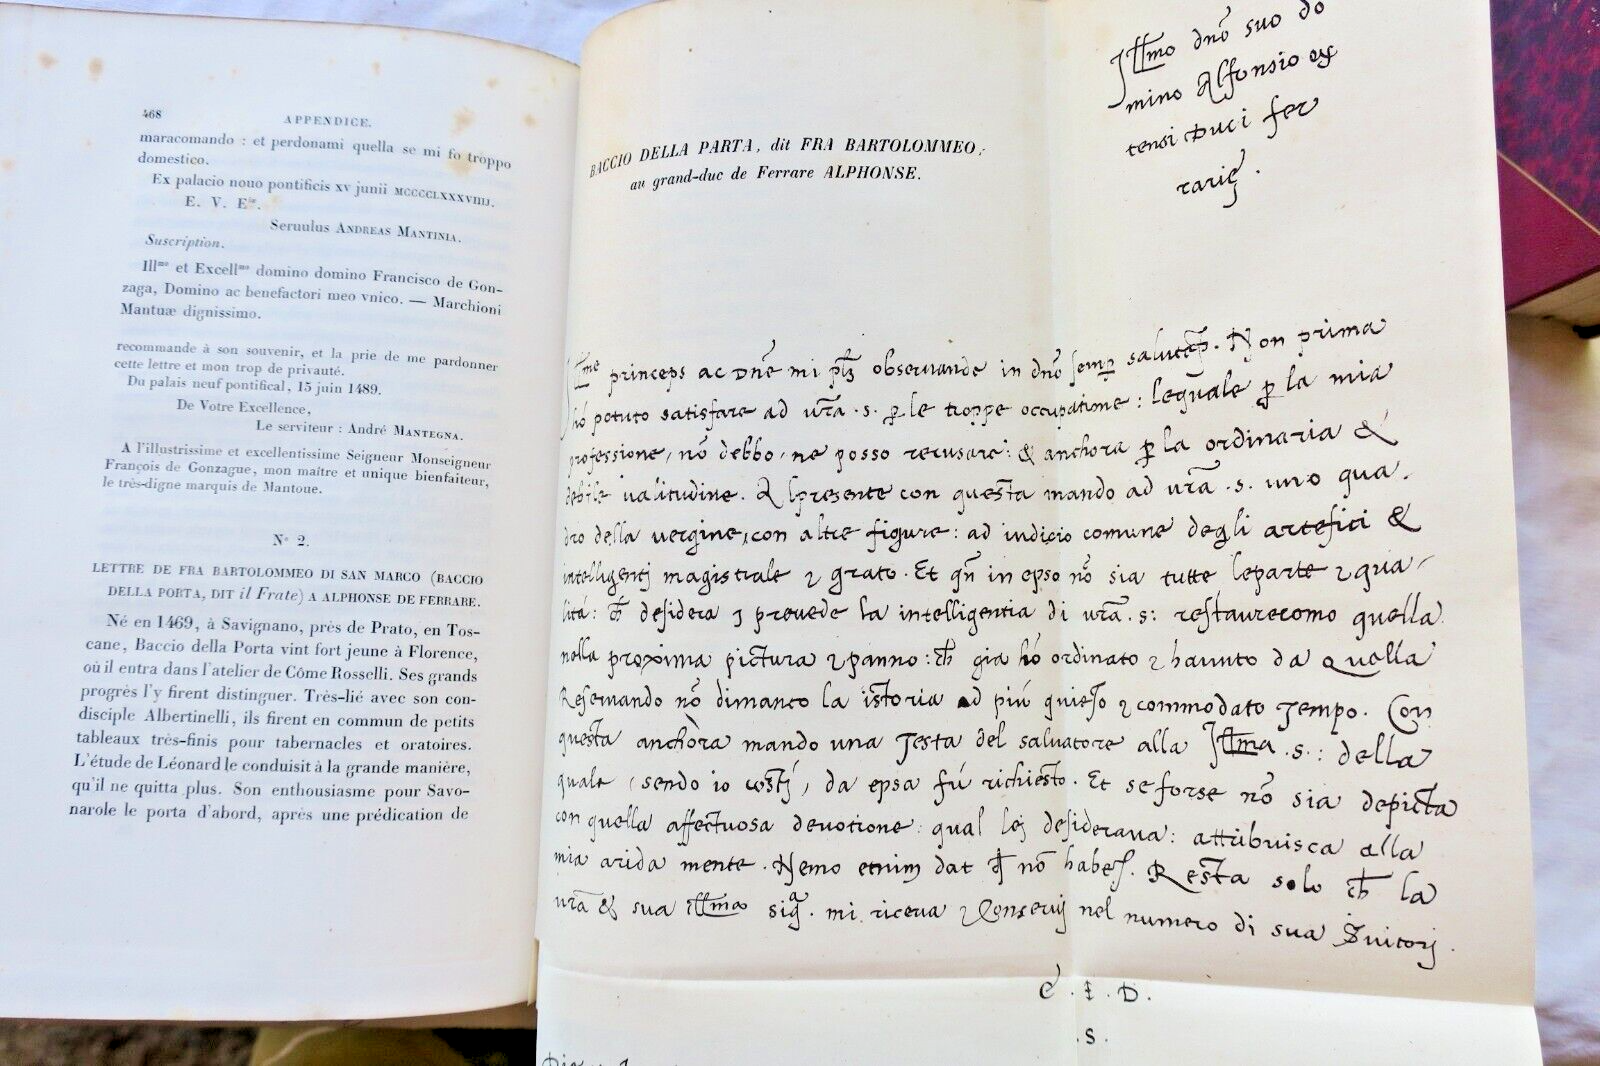 468
APPENDICE.
maracomando : et perdonami quella se mi fo troppo
domestico.
Ex palacio nouo pontificis xv junii MCCCCLXXXVIIIJ.
E. V. Eie.
Seruulus ANDREAS MANTINIA.
Suscription.
Illme et Excellmo domino domino Francisco de Gon-
zaga, Domino ac benefactori meo vnico. — Marchioni
Mantuæ dignissimo.
recommande à son souvenir, et la prie de me pardonner
cette lettre et mon trop de privauté.
Du palais neuf pontifical, 15 juin 1489.
De Votre Excellence,
Le serviteur : André MANTEGNA.
A l'illustrissime et excellentissime Seigneur Monseigneur
François de Gonzague, mon maître et unique bienfaiteur,
le très-digne marquis de Mantoue.
N° 2.
LETTRE DE FRA BARTOLOMMEO DI SAN MARCO (BACCIO
DELLA PORTA, DIT il Frate) A ALPHONSE DE FERRARE.
Né en 1469, à Savignano, près de Prato, en Tos-
cane, Baccio della Porta vint fort jeune à Florence,
où il entra dans l'atelier de Côme Rosselli. Ses grands
progrès l'y firent distinguer. Très-lié avec son con-
disciple Albertinelli, ils firent en commun de petits
tableaux très-finis pour tabernacles et oratoires.
L'étude de Léonard le conduisit à la grande manière,
qu'il ne quitta plus. Son enthousiasme pour Savo-
narole le porta d'abord, après une prédication de
BACCIO DELLA PARTA, dit FRA BARTOLOMMEO,
au grand-duc de Ferrare ALPHONSE.
Illmo dnō suo do
mino Alfonsio
tensi Duci fer
rarię.
Illme princeps ac Dnē mi obseruande in dnō salutē. Non prima
hó potuto satisfare ad vrā .s. p le troppe occupatiōne : lequale p la mia
professione, nō debbo, ne posso recusare : & anchora p la ordinaria &
debile valitudine. Al presente con questa mando ad vrā .s. uno qua.
dro della vergine, con altre figure : ad iudicio comune degli artefici &
intelligentj magistrale & grato. Et in epso nō sia tutte le parte & qua-
lità : desidera & prevede la intelligentia di vrā .s: restaurecomo quella
nella proxima pictura & panno : già hò ordinato & hauuto da Quella
Reseruando nō dimanco la istoria ad più quieto & commodato Tempo. Con
questa anchora mando una Testa del saluatore alla Illma .s.: della
quale, sendo io costj, da epsa fú richiesto. Et se forse nō sia depicta
con quella affectuosa devotione qual lej desideraua : attribuisca alla
mia arida mente. Nemo etnim dat nō habet. Resta solo la
vrā & sua Illma sigā. mi riceva & Conseruj nel numero di sua Suitorj.
E . I . D .
. S .